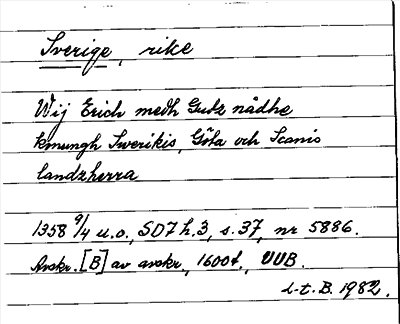 Sverige, rike
Wij Erich medh Gudz nådhe
konungh Swerikis, Göta och Scanis
landzherra
1358 9/4 u.o., SD7 h.3, s. 37, nr 5886.
Avskr. [B] av avskr., 1600t., UUB.
L-t. B. 1982.